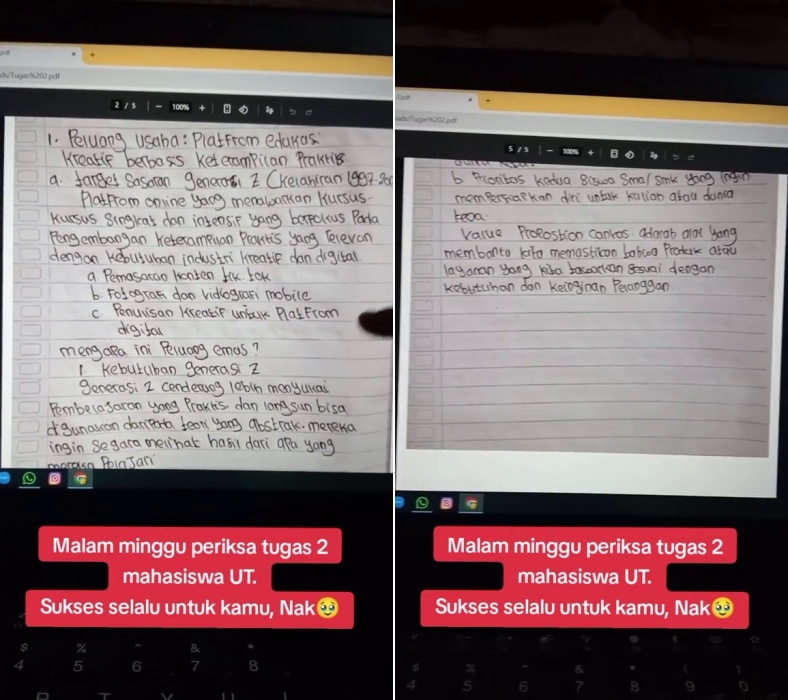 pdf
ads/Tugas%202.pdf
2 / 5
100%
1. Peluang usaha: Platfrom edukasi
kreatif berbasis keterampilan Praktis
a. target Sasaran generasi Z (kelahiran 1997-20
Platfrom online yang menawarkan kursus-
kursus singkat dan intensif yang berfokus Pada
Pengembangan keterampilan Praktis yang relevan
dengan kebutuhan industri kreatif dan digital
a Pemasaran konten tik tok
b. Fotografi dan vidiografi mobile
c. Penulisan kreatif untuk Platfrom
digital
mengapa ini Peluang emas?
1. kebutuhan generasi Z
generasi Z cenderung lebih menyukai
Pembelajaran yang Praktis dan langsun bisa
digunakan daripada teori yang abstrak. mereka
ingin segara melihat hasil dari apa yang
mereka Pelajari
Malam minggu periksa tugas 2
mahasiswa UT.
Sukses selalu untuk kamu, Nak🥹
$ % ^ & *
4 5 6 7 8
R T Y U I
2.pdf
ads/Tugas%202.pdf
5 / 5
100%
dunia kerja.
b. Prioritas kedua siswa sma/smk yang ingin
mempersiapkan diri untuk kuliah atau dunia
kerja.
Value Propostion Canvas adalah alat yang
membantu kita memastikan bahwa Produk atau
layanan yang kita tawarkan sesuai dengan
kebutuhan dan keinginan Pelanggan
Malam minggu periksa tugas 2
mahasiswa UT.
Sukses selalu untuk kamu, Nak🥹
$ % ^ & * ( )
4 5 6 7 8 9 0